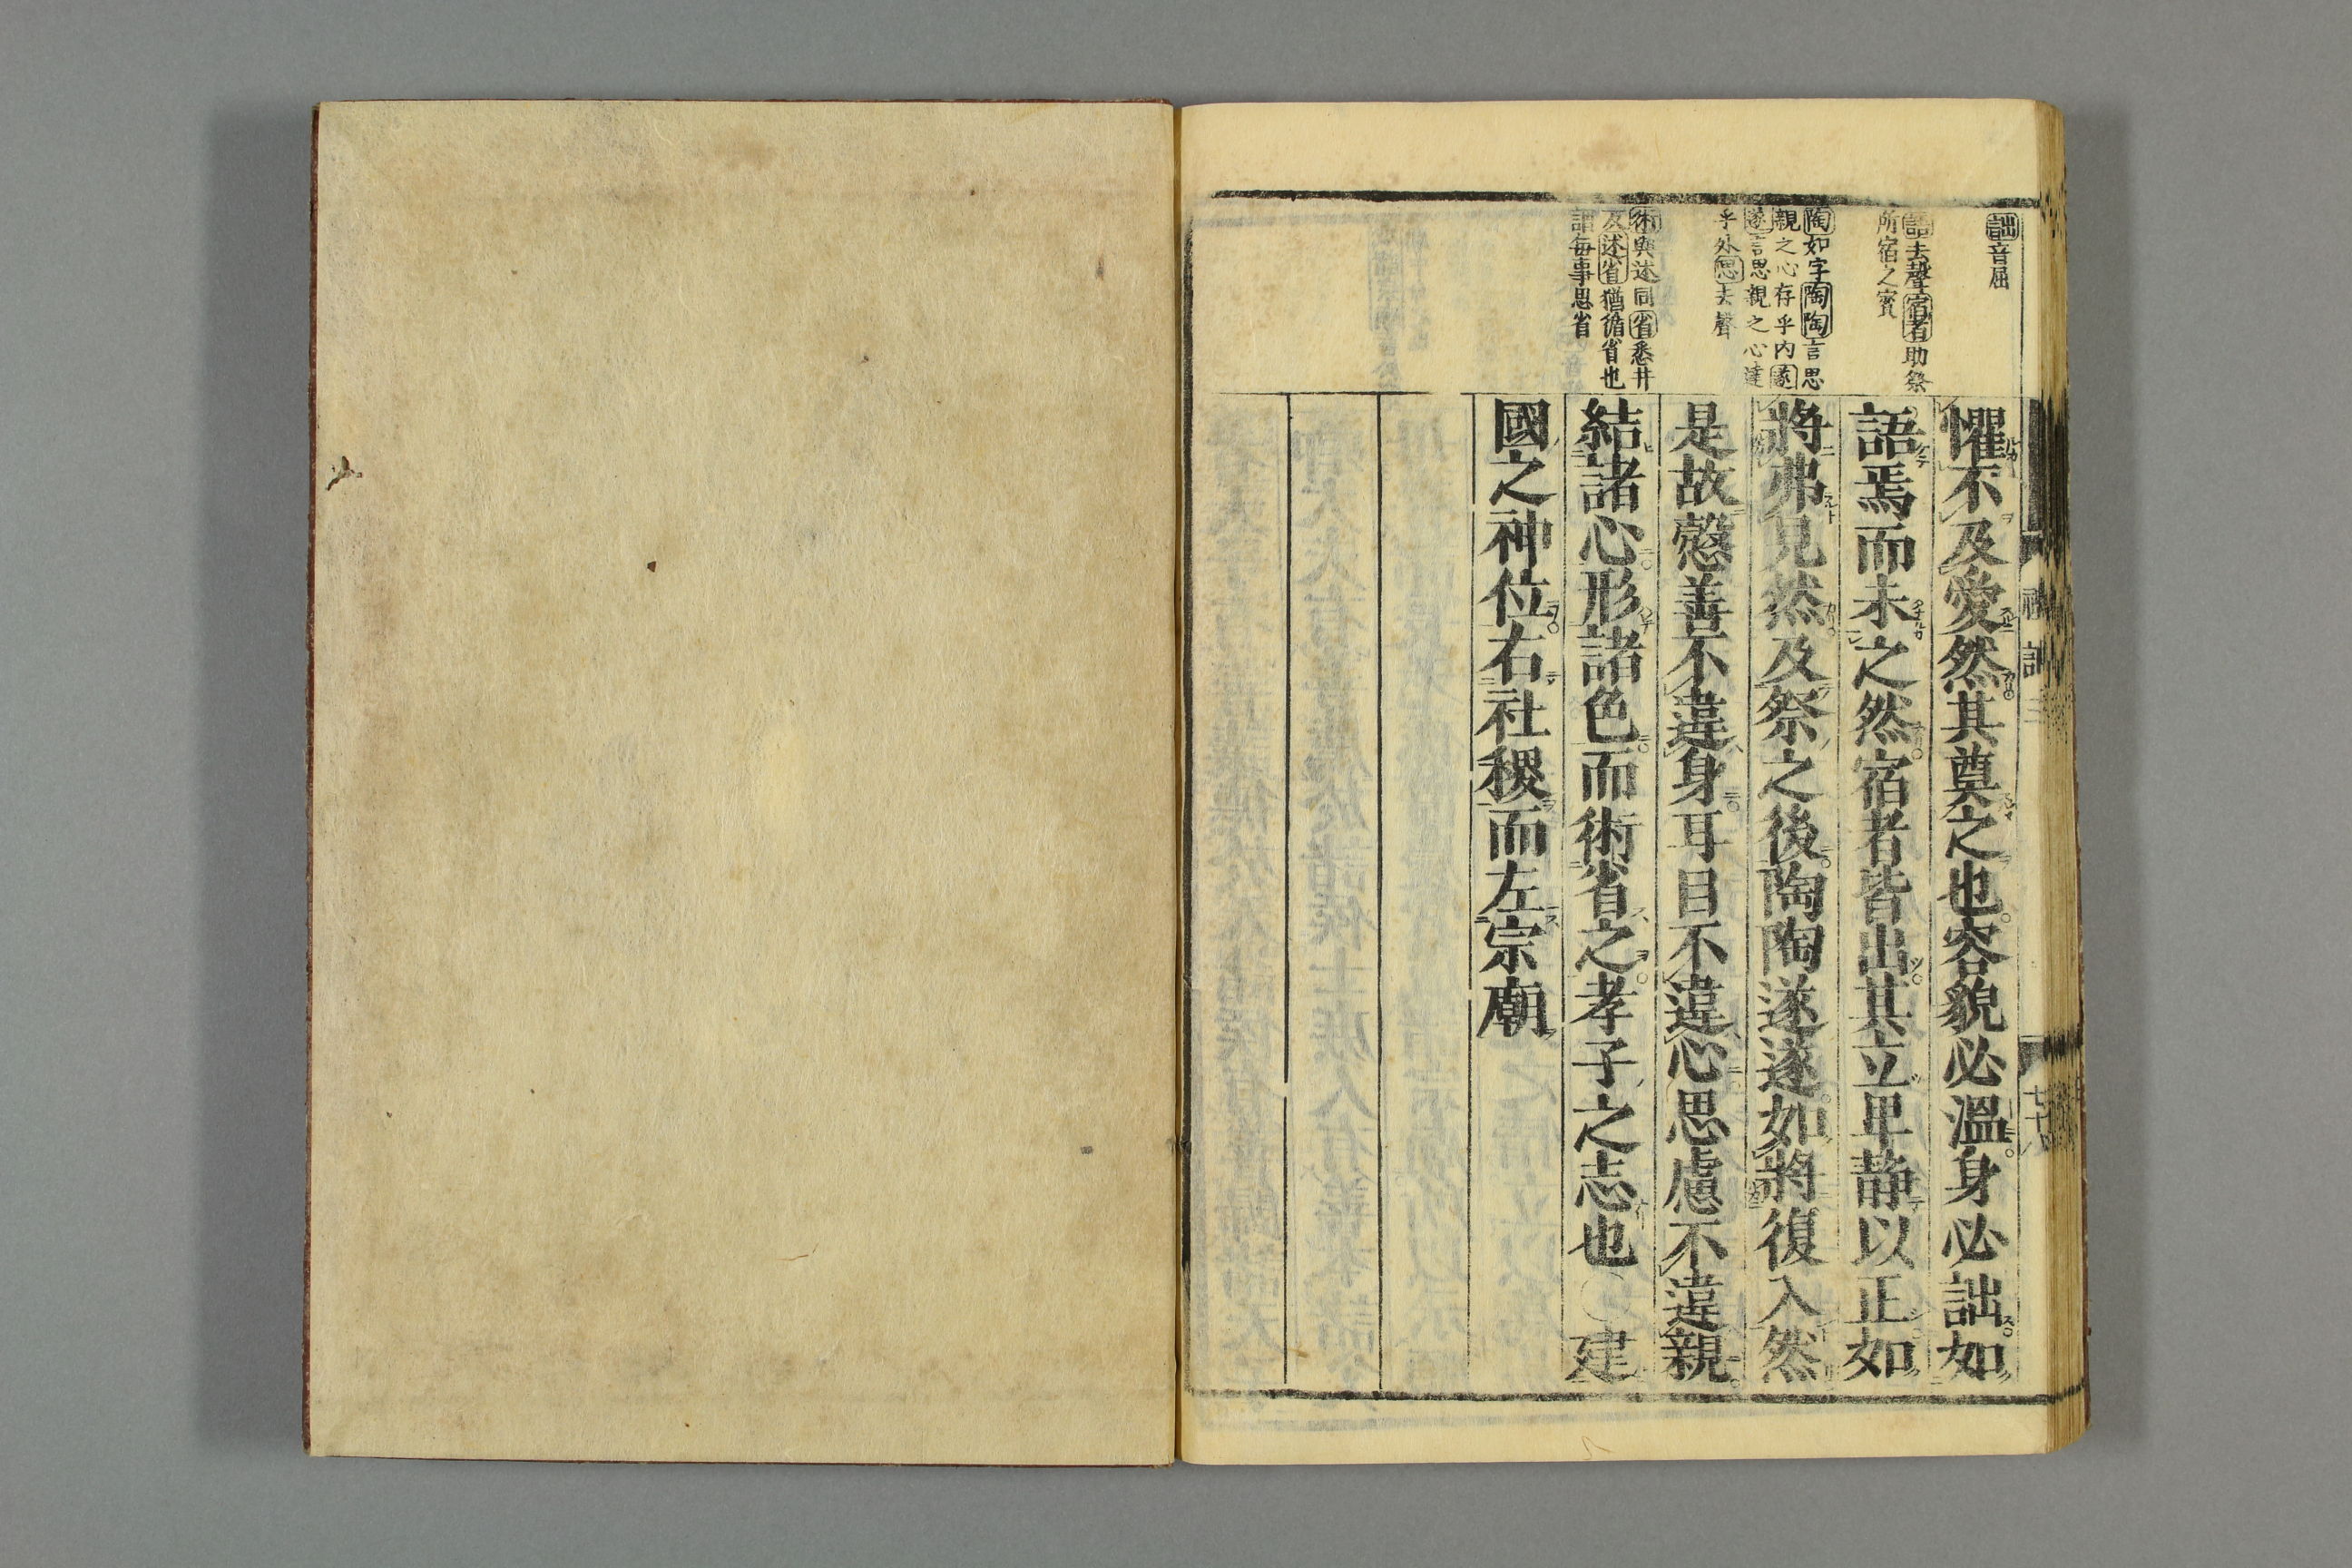 詘音屈
語去聲宿者助祭
所宿之賓
陶如字陶陶言思
親之心存乎内遂
遂言思親之心達
乎外思去聲
術與述同省悉井
反述省猶循省也
謂每事思省
懼不及愛然其奠之也容貌必溫身必詘如
語焉而未之然宿者皆出其立卑静以正如
將弗見然及祭之後陶陶遂遂如將復入然
是故慤善不違身耳目不違心思慮不違親
結諸心形諸色而術省之孝子之志也〇建
國之神位右社稷而左宗廟
禮記三
七十八